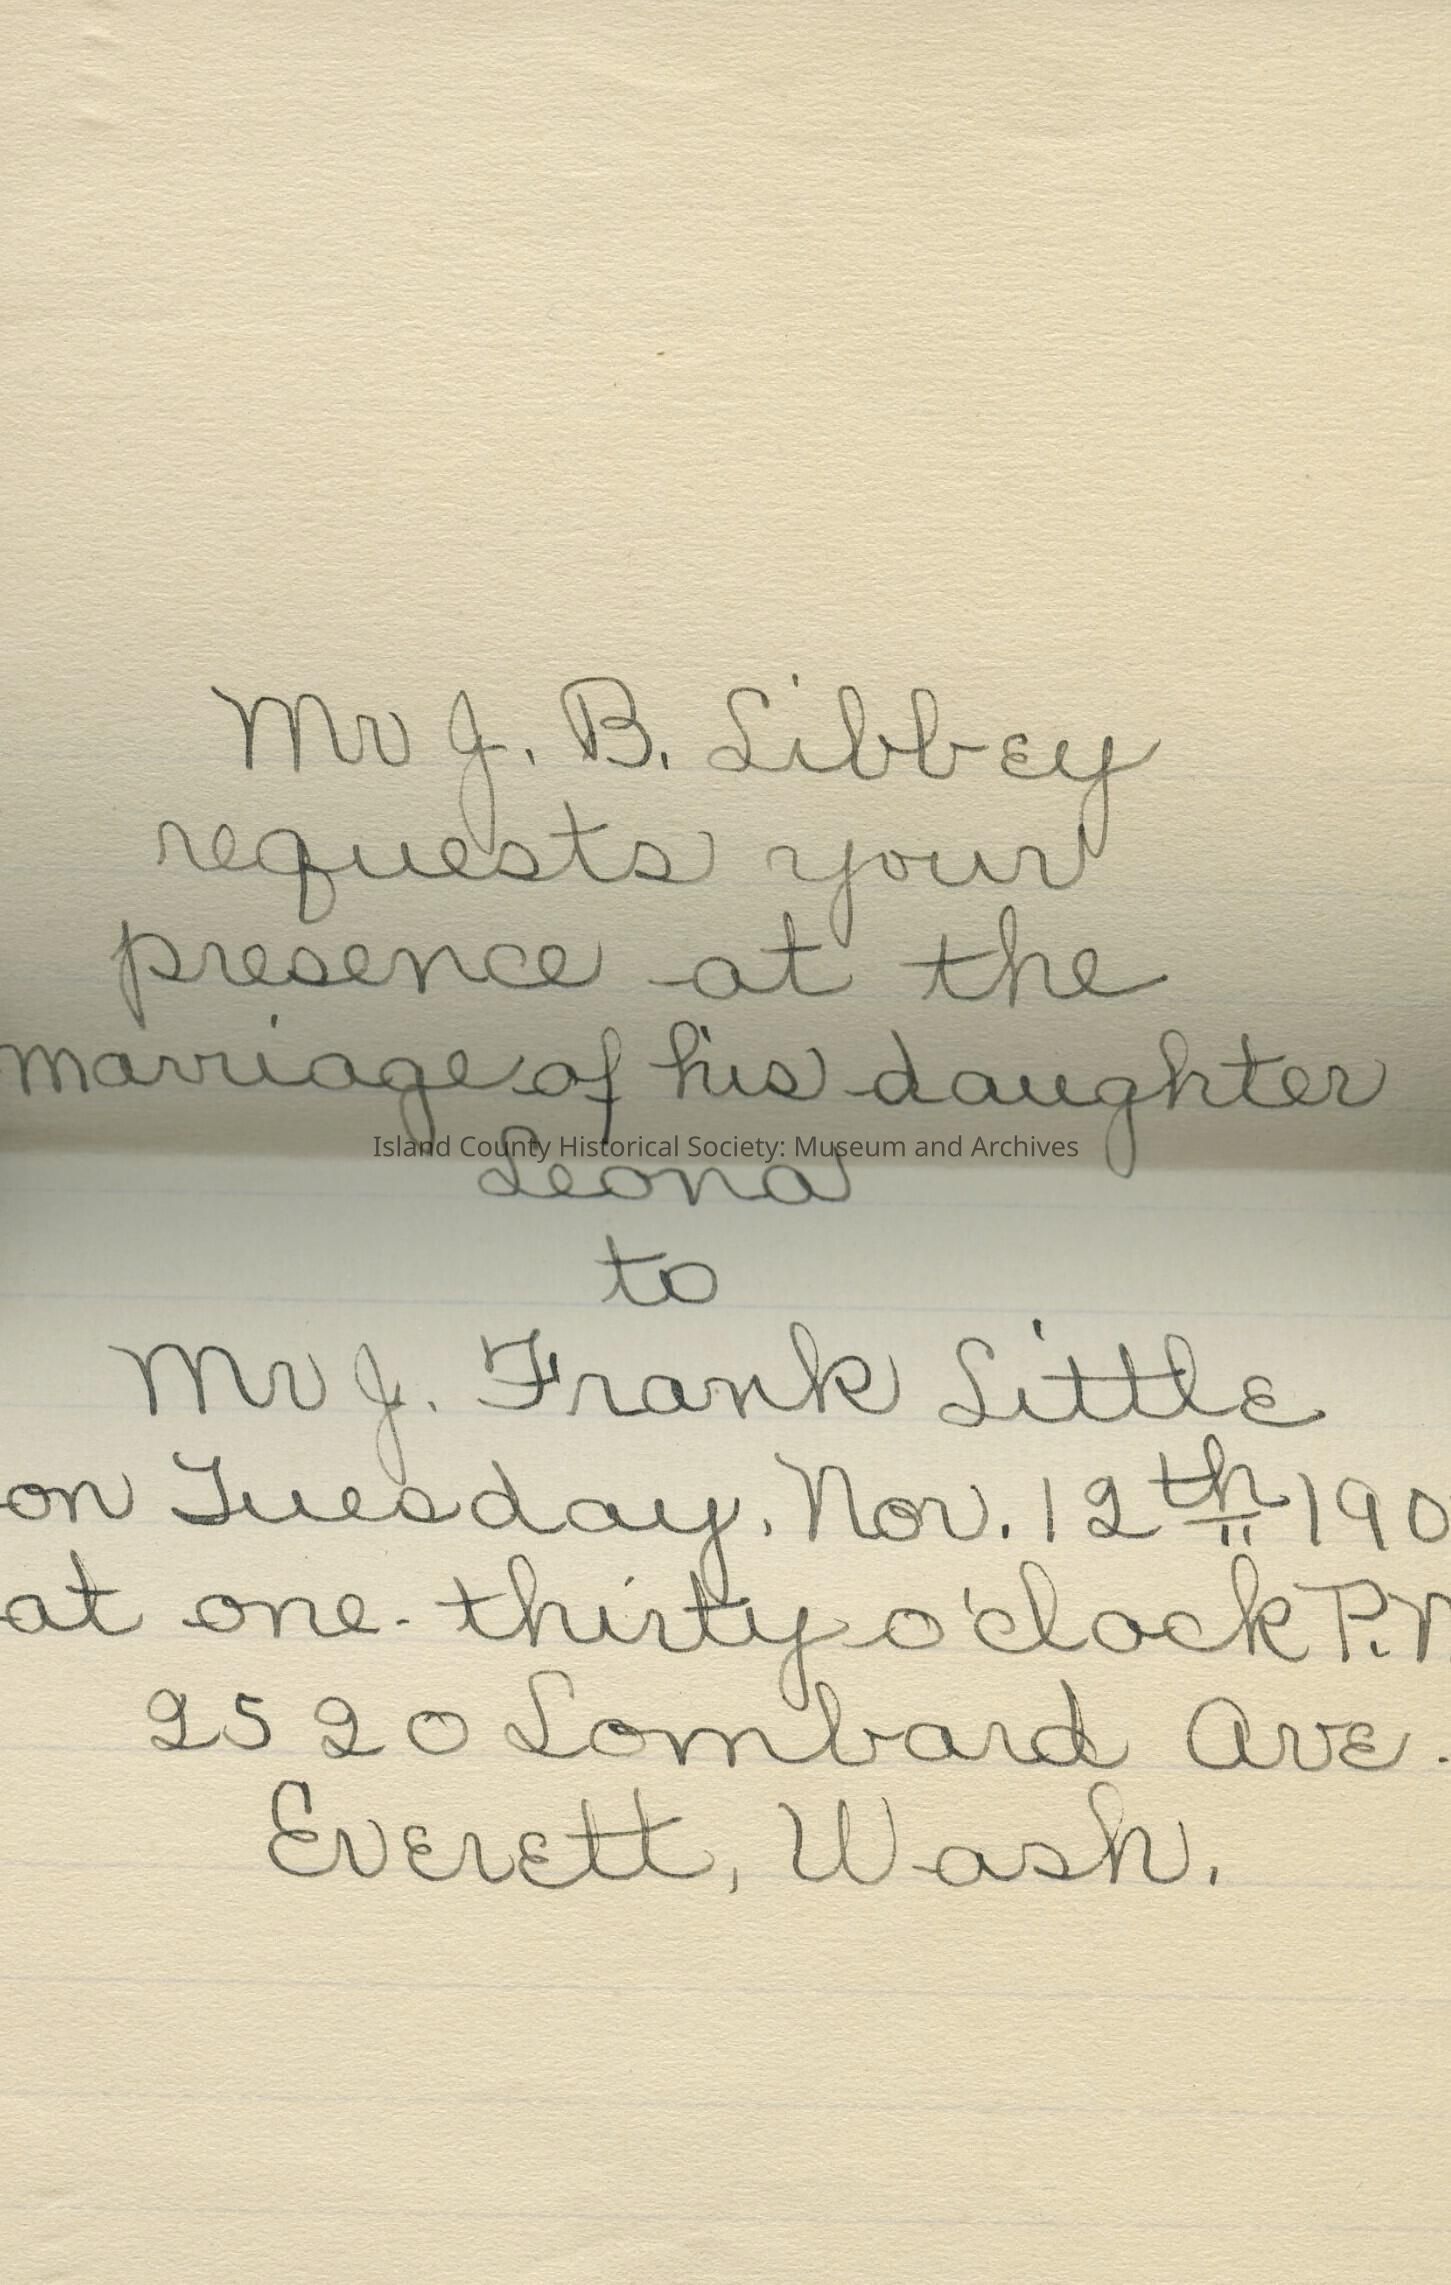 Mr J. B. Libbey
requests your
presence at the
marriage of his daughter
Island County Historical Society: Museum and Archives
Leona
to
Mr J. Frank Little
on Tuesday, Nov. 12th 190
at one-thirty o'clock P.M
2520 Lombard Ave.
Everett, Wash.